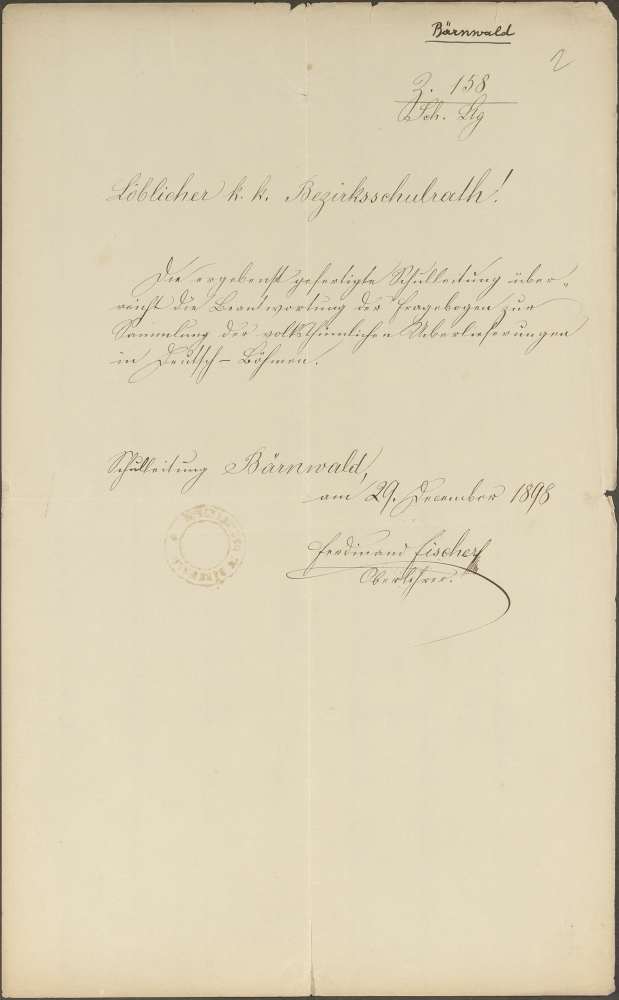 Bärnwald
2
Z. 158
Sch. Ltg
Löblicher k. k. Bezirksschulrath!
Die ergebenst gefertigte Schulleitung über-
reicht die Beantwortung der Fragebogen zur
Sammlung der volksthümlichen Ueberlieferungen
in Deutsch-Böhmen.
Schulleitung Bärnwald,
am 29. December 1898
Ferdinand Fischer
Oberlehrer.